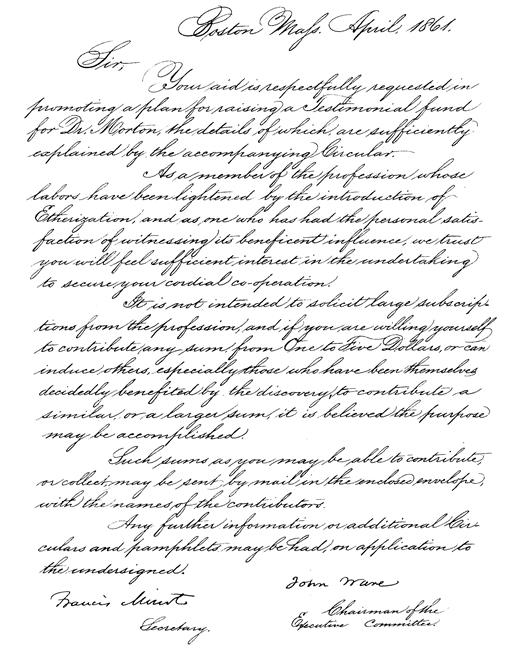 Boston Mass. April, 1861.
Sir,
Your aid is respectfully requested in
promoting a plan for raising a Testimonial fund
for Dr. Morton, the details of which are sufficiently
explained by the accompanying Circular.
As a member of the profession whose
labors have been lightened by the introduction of
Etherization, and as one who has had the personal satis-
faction of witnessing its beneficent influence, we trust
you will feel sufficient interest in the undertaking
to secure your cordial co-operation.
It is not intended to solicit large subscrip-
tions from the profession, and if you are willing yourself
to contribute any sum from One to Five Dollars, or can
induce others, especially those who have been themselves
decidedly benefited by the discovery, to contribute a
similar, or a larger sum, it is believed the purpose
may be accomplished.
Such sums as you may be able to contribute,
or collect, may be sent by mail in the enclosed envelope,
with the names of the contributors.
Any further information or additional Cir-
culars and pamphlets may be had, on application to
the undersigned.
John Ware
Francis Minot
Chairman of the
Secretary.
Executive Committee.